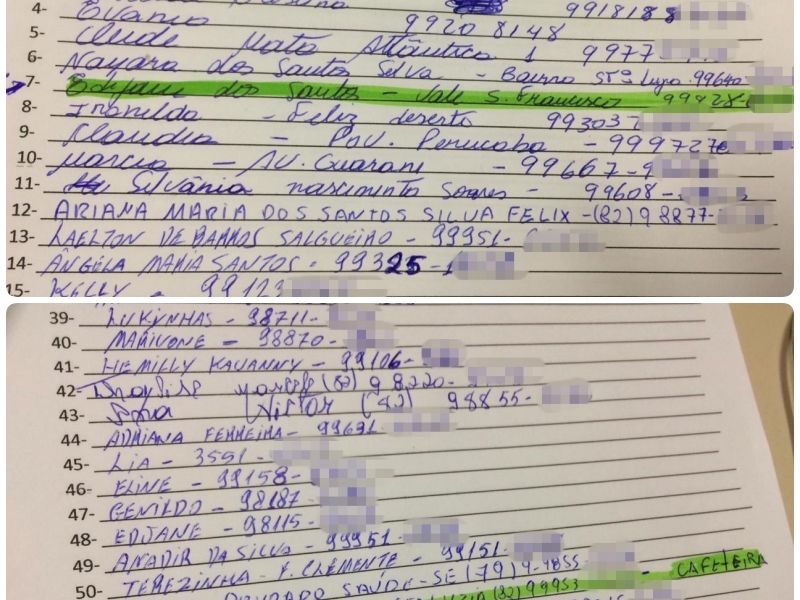 4-
Evanio 9918188
5- 9920 8148
Cleide Mata Atlântica 1 9977
6-
Nayara dos Santos Silva - Bairro Stª Luzia 99640
7- dos Santos - Vale S. Francisco 99928-
8- Ironildo - Feliz deserto 993037
9- Claudia - Pov. Penucaba - 999727
10- Marcia - AV. Guarani - 99667-9
11- Silvânia nascimento Soares - 99608-
12- ARIANA MARIA DOS SANTOS SILVA FELIX - (82) 9 8877-
13- LAELTON DE BARROS SALGUEIRO - 99951-
14- ÂNGELA MARIA SANTOS - 99325-
15- KELLY - 99123
39- LUKYNHAS - 98711-
40- MARIVONE - 98870-
41- HEMILLY KAUANNY - 99106-
42- (82) 9 8220-
43- Victor (82) 98855-
44- ADRIANA FERREIRA - 99691
45- LIA - 3551-
46- ELINE - 99158-
47- GENILDO - 98187
48- EDIJANE - 98115-
49- ANADIR DA SILVA - 99951-
50- TEREZINHA F. CLEMENTE - 99151-
DOURADO SAÚDE-SE (79) 9-9855 - CAFETEIRA
LUZIA (82) 99953